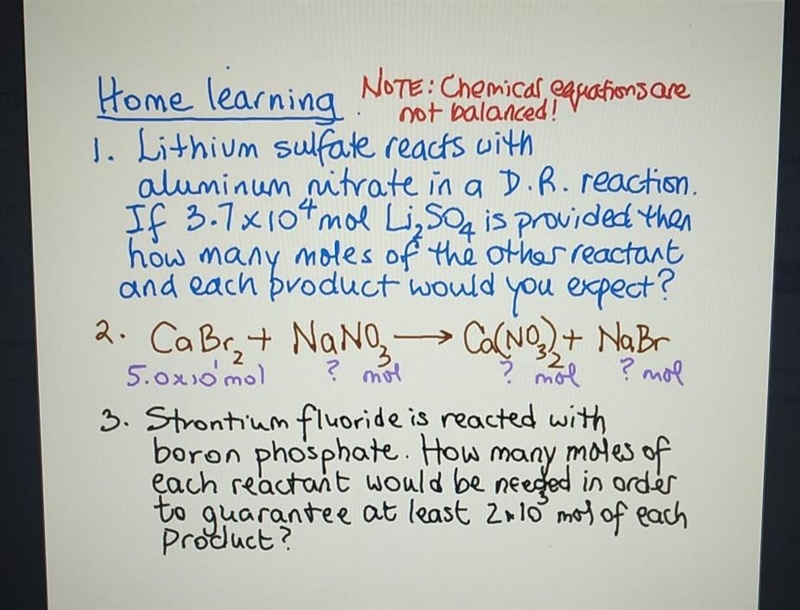 Home learning. NOTE: Chemical equations are
not balanced!
1. Lithium sulfate reacts with
aluminum nitrate in a D.R. reaction.
If 3.7x10⁴ mol Li₂SO₄ is provided then
how many moles of the other reactant
and each product would you expect?
2. CaBr₂ + NaNO₃ → Ca(NO₃)₂ + NaBr
5.0x10¹ mol ? mol ? mol ? mol
3. Strontium fluoride is reacted with
boron phosphate. How many moles of
each reactant would be needed in order
to guarantee at least 2x10³ mol of each
product?